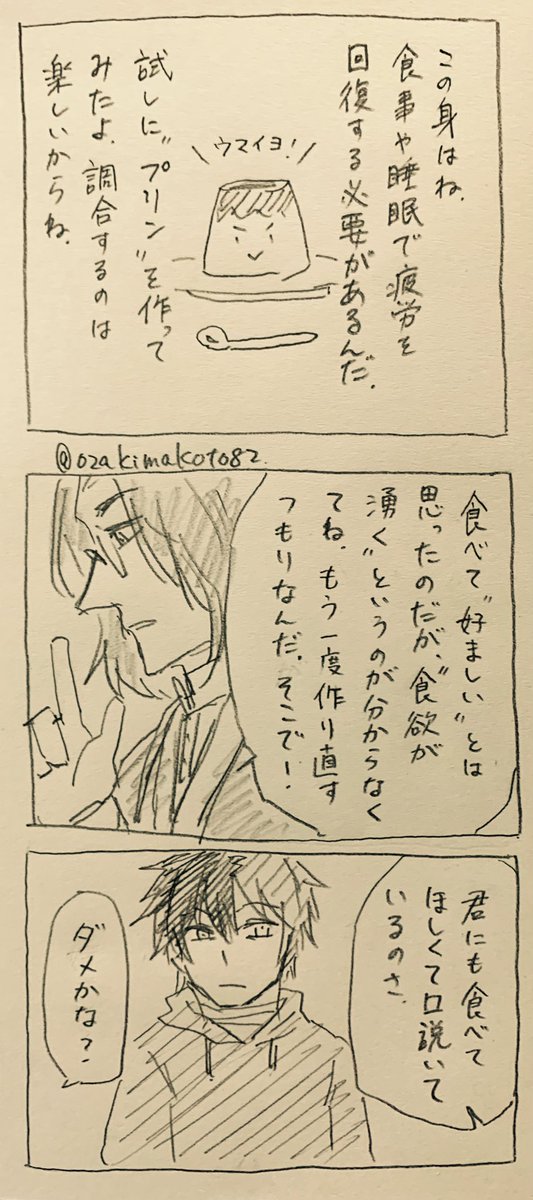 この身はね、
食事や睡眠で疲労を
回復する必要があるんだ.
ウマイヨ!
試しに"プリン"を作って
みたよ、調合するのは
楽しいからね、
@ozakimakoto82
食べて"好ましい"とは
思ったのだが、"食欲が
湧く"というのが分からなく
てね、もう一度作り直す
つもりなんだ、そこで!
君にも食べて
ほしくて口説いて
いるのさ、
ダメかな?